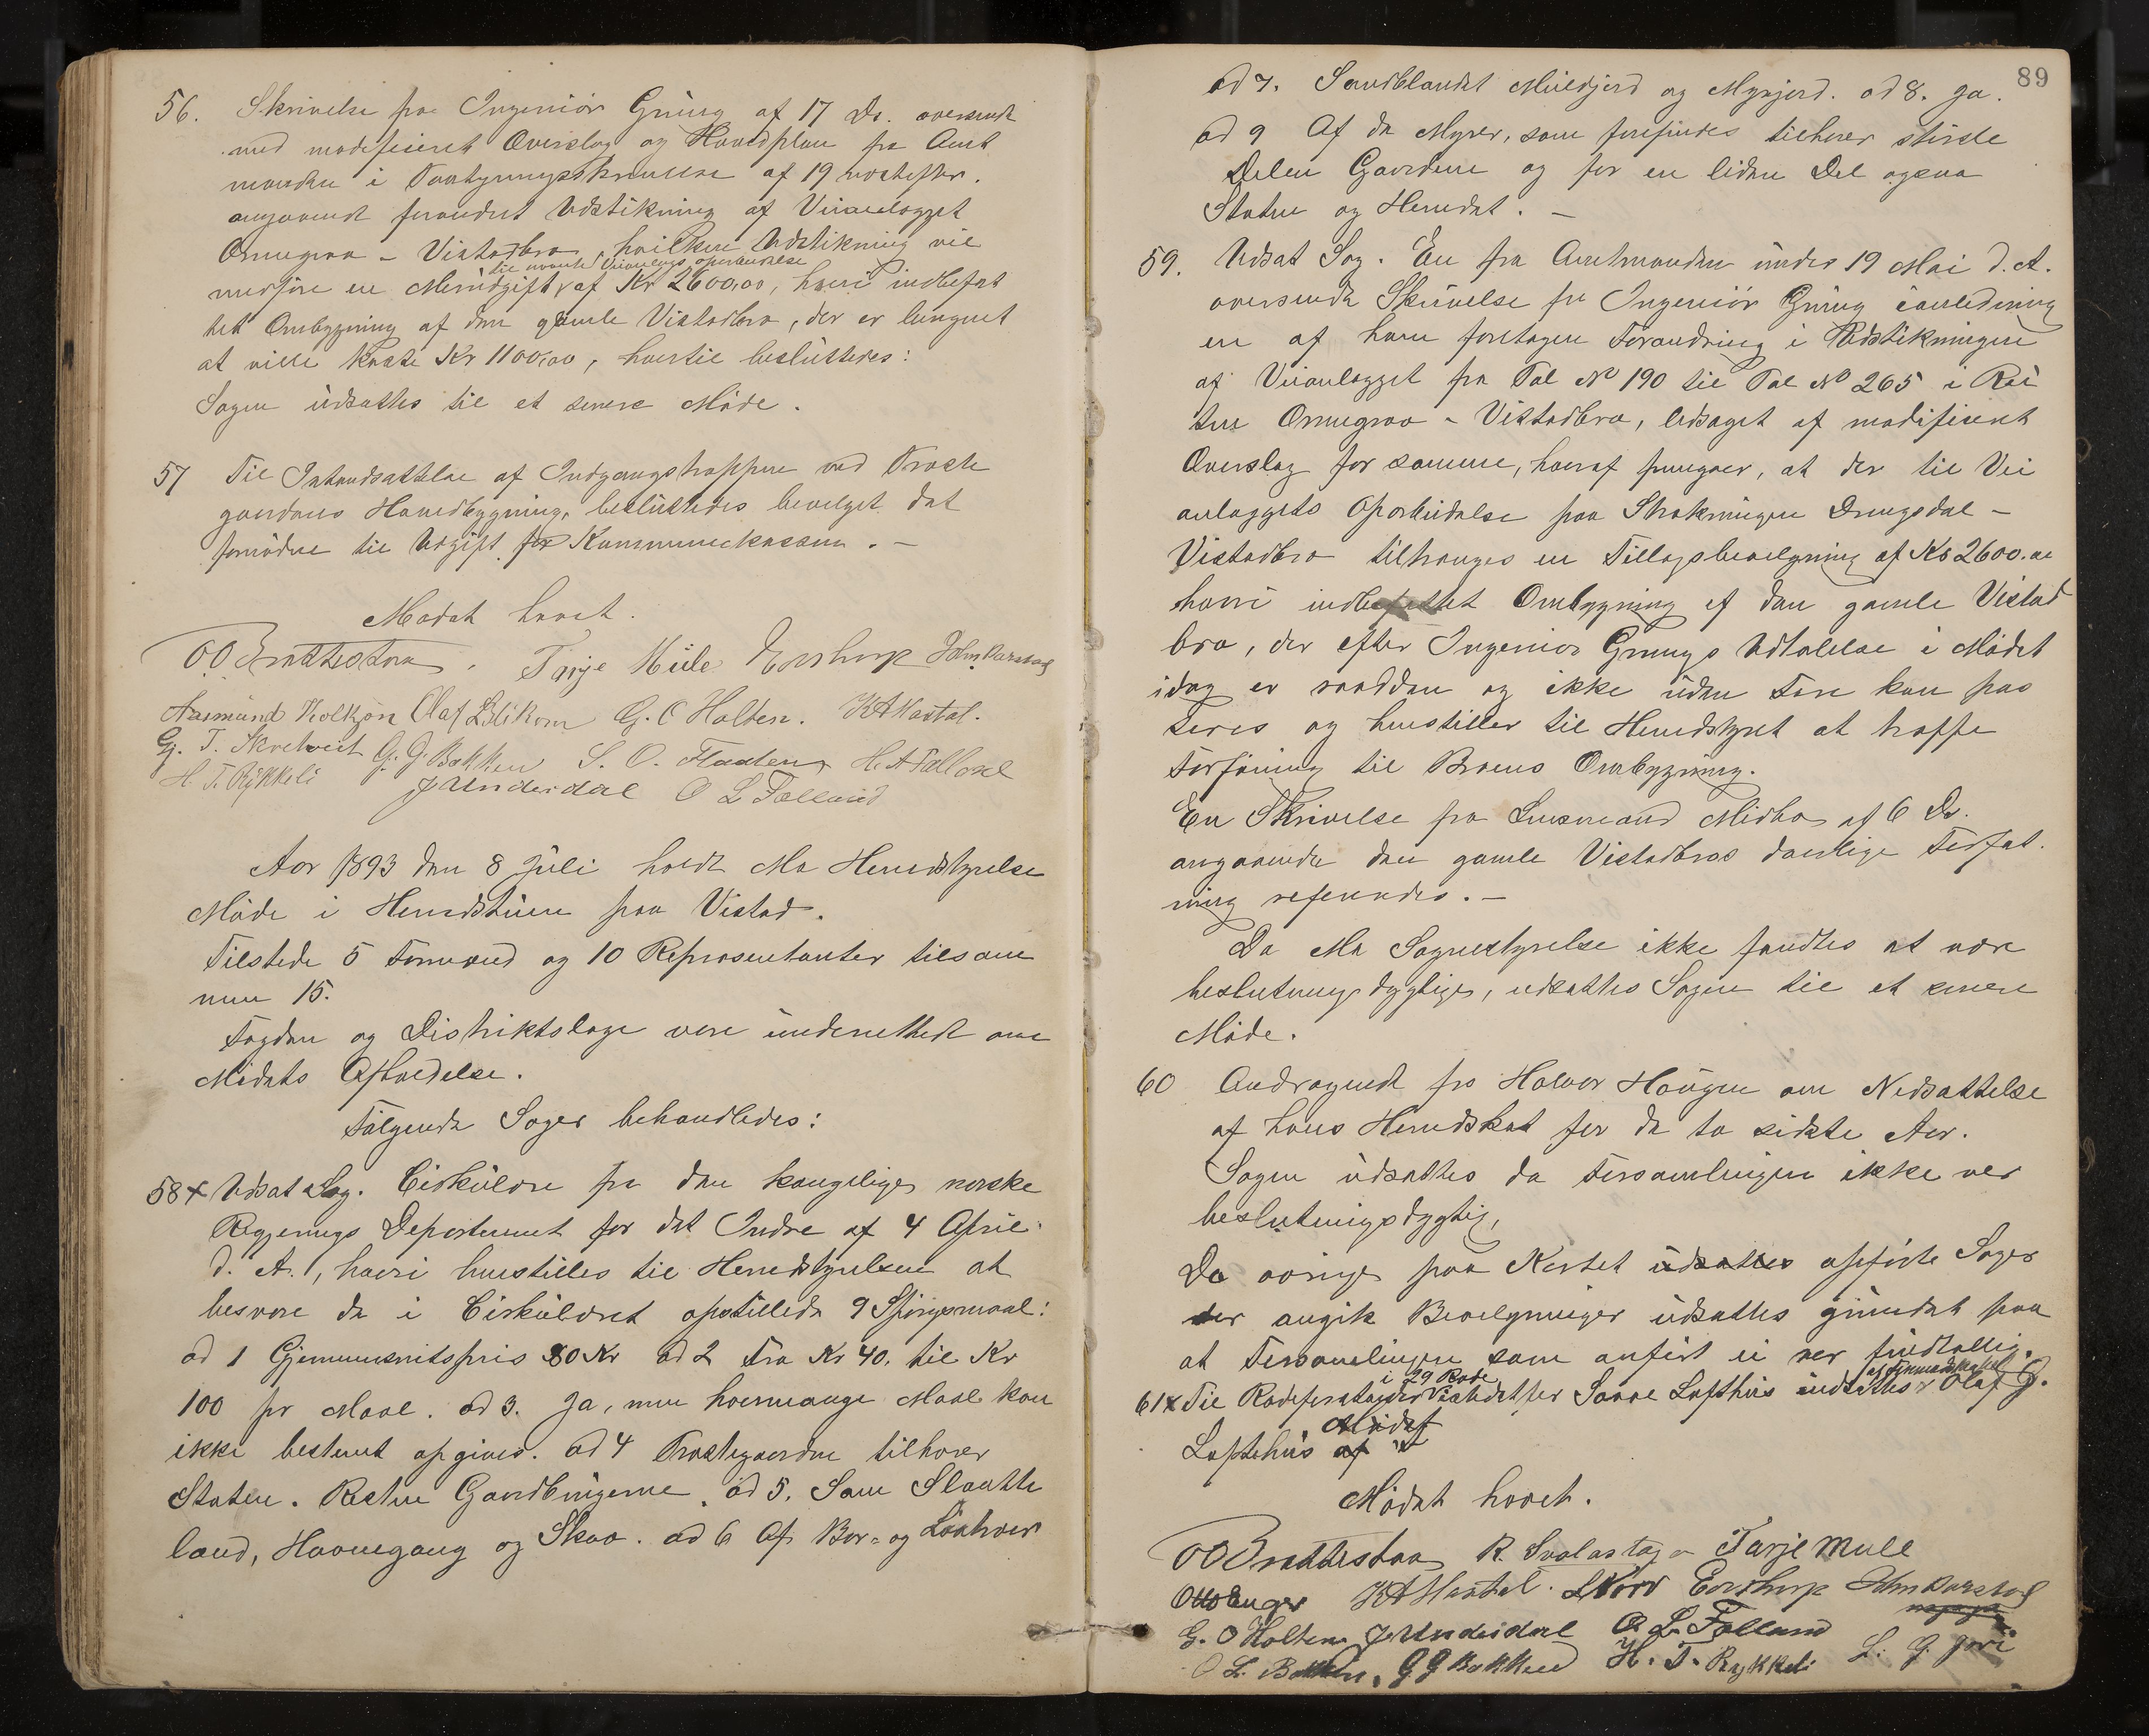 56. Skrivelse fra Ingeniör Grüng af 17 Ds. oversendt
med modificeret Overslag og Hovedplan fra Amt
manden i Paategningsskrivelse af 19 næstefter.
angaaende forandret Udstikning af Veianlægget
Omnegraa - Vistadbro, hvilken Udstikning vil
til nævnte Veianlægs oparbeidelse
medföre en Merudgift af Kr 2600,00, heri indbefat
tet Ombygning af den gamle Vistadbro, der er beregnet
at ville koste Kr 1100,00, hvortil beslüttedes:
Sagen üdsattes til et senere Möde.
57 Til Istandsættelse af Indgangstrappen ved Præste
gaardens Hovedbygning, beslüttedes bevilget det
fornödne til Udgift for Kommunekassen. -
Mödet hævet.
O O Brattestaa. Tarje Mule Earthorp John Aarstad
Aasmund Kolkjön Olaf L. G. O Holten. K A Nartal.
G. T. Skretveit G. G Bakken S. O. Flaaten H. A Tallaksel
H. T. Rykkeli J Underdal O L Folland
Aar 1893 den 8 Jüli holdt Mo Heredstyrelse
Möde i Heredstüen paa Vistad.
Tilstede 5 Formænd og 10 Repræsentanter tilsam
men 15.
Fogden og Distriktslæge vare ünderrettedt om
Mödets Afholdelse.
Fölgende Sager behandledes:
58 x Udsat Sag. Cirkülære fra den kongelige norske
Regjerings Departement for det Indre af 4 April
d. A., hvori henstilles til Heredstyrelsen at
besvare de i Cirkülæret opstillede 9 Spörgsmaal:
ad 1 Gjennemsnitspris 80 Kr ad 2 Fra Kr 40. til Kr
100 pr Maal. ad 3. Ja, men hvormange Maal kan
ikke bestemt opgives. ad 4 Præstegaarden tilhører
Staten. Resten Gaardbrügerne. ad 5. Som Slaatte
land, Havnegang og Skov. ad 6 Af Bar- og Lövtræer
89
ad 7. Sandblandet Müldjord og Myrjord. ad 8. Ja.
ad 9 Af de Myrer, som forefindes tilhører störste
Delen Gaardene og for en liden Del ogsaa
Staten og Heredet. -
59. Udsat Sag. En fra Amtmanden ünder 19 Mai d. A.
oversendt Skrivelse fra Ingeniör Grüng i anledning
en af ham foretagen Forandring i Udstikningen
af Veianlægget fra Pæl No 190 til Pæl No 265 i Rü
ten Omnegraa - Vistadbro, ledsaget af modificeret
Overslag for samme, hvoraf fremgaar, at der til Vei
anlæggets Oparbeidelse paa Strækningen Drengsdal -
Vistadbro tiltrænges en Tillægsbevilgning af Kr 2600.00
hvori indbefattet Ombygning af den gamle Vistad
bro, der efter Ingeniör Grüngs Udtalelse i Mödet
idag er raadden og ikke üden Fare kan pas
seres og henstiller til Heredstyret at træffe
Forföining til Broens Ombygning.
En Skrivelse fra Lensmand Midbö af 6 Ds.
angaaende den gamle Vistadbros daarlige Forfat
ning refereredes. -
Da Mo Sognestyrelse ikke fandtes at være
beslutningsdygtige, udsattes Sagen til et senere
Möde.
60 Andragende fra Halvor Haügen om Nedsættelse
af hans Heredskat for de to sidste Aar.
Sagen üdsattes da Forsamlingen ikke var
beslutningsdygtig,
De övrige paa Kartet üdsattes opförte Sager
der angik Bevilgninger üdsattes gründet paa
at Forsamlingen som anfört ei var füldtallig.
i 29 Rode
af Formandskabet
61 x Til Rodeforstander istedetfor Lofthüs indsattes Olaf G.
Mödet
Lofthüs af
Mödet hævet.
O O Brattestaa R. Svalastoga Tarje Mule
Otto Enger K A Nartal. Earthorp John Aarstad
G. O Holten J Underdal O. L. Folland
O L. Bakken. G G Bakken H. T. Rykkeli L. G. Jore